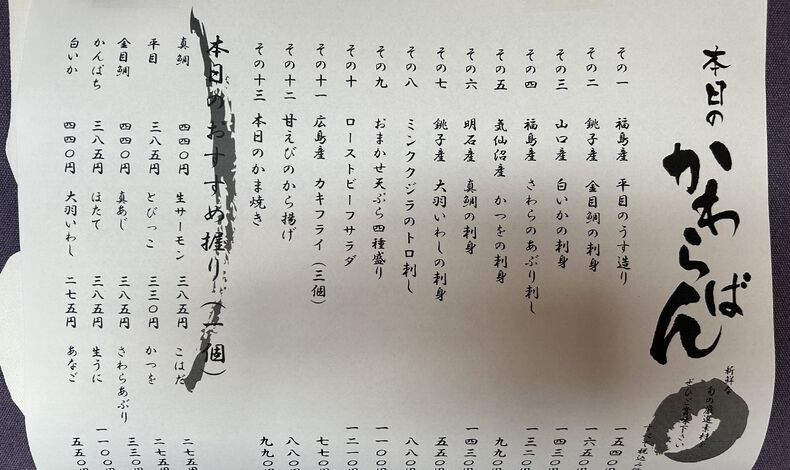 本日の
かわらばん
新鮮な
旬の厳選素材を
ぜひご賞味下さい
その一 福島産 平目のうす造り 一五四〇
その二 銚子産 金目鯛の刺身 一六五〇
その三 山口産 白いかの刺身 一四三〇
その四 福島産 さわらのあぶり刺し 一三二〇
その五 気仙沼産 かつをの刺身 九九〇
その六 明石産 真鯛の刺身 一四三〇
その七 銚子産 大羽いわしの刺身 五五〇
その八 ミンククジラのトロ刺し 八八〇
その九 おまかせ天ぷら四種盛り 一一〇〇
その十 ローストビーフサラダ 一二一〇
その十一 広島産 カキフライ(三個) 七七〇
その十二 甘えびのから揚げ 八八〇
その十三 本日のかま焼き 九九〇
本日のおすすめ握り(一個)
真鯛 四四〇円 生サーモン 三八五円 こはだ 二七五
平目 三八五円 とびっこ 三三〇円 かつを 二七五
金目鯛 四四〇円 真あじ 三八五円 さわらあぶり 三三〇
かんぱち 三八五円 ほたて 三八五円 生うに 一一〇〇
白いか 四四〇円 大羽いわし 二七五円 あなご 五五〇